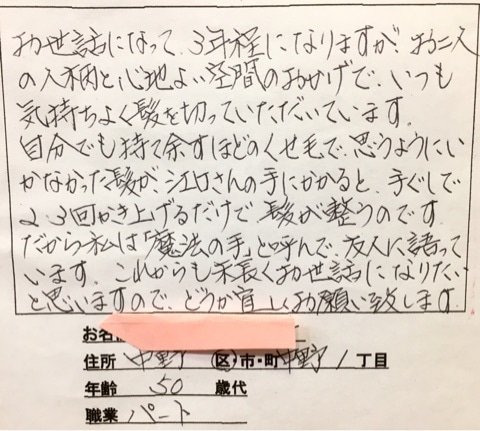 お世話になって、3年程になりますが、お二人
の人柄と心地よい空間のおかげで、いつも
気持ちよく髪を切っていただいています。
自分でも持て余すほどのくせ毛で、思うようにい
かなかった髪が、江口さんの手にかかると、手ぐしで
2、3回かき上げるだけで髪が整うのです。
だから私は「魔法の手」と呼んで、友人に語って
います。これからも末長くお世話になりたい
と思いますので、どうか宜しくお願い致します。
お名
住所 中野 区・市・町 中野1丁目
年齢 50 歳代
職業 パート